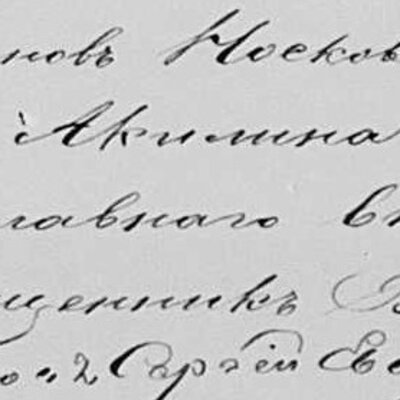 новъ Носков
Акилина
лавнаго в
щенникъ
Сергій Ев